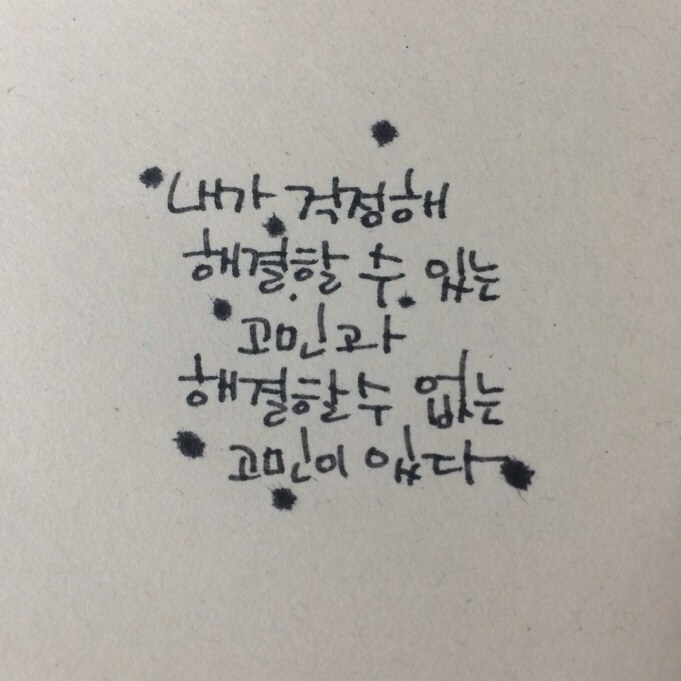 내가 걱정해
해결할 수 있는
고민과
해결할 수 없는
고민이 있다